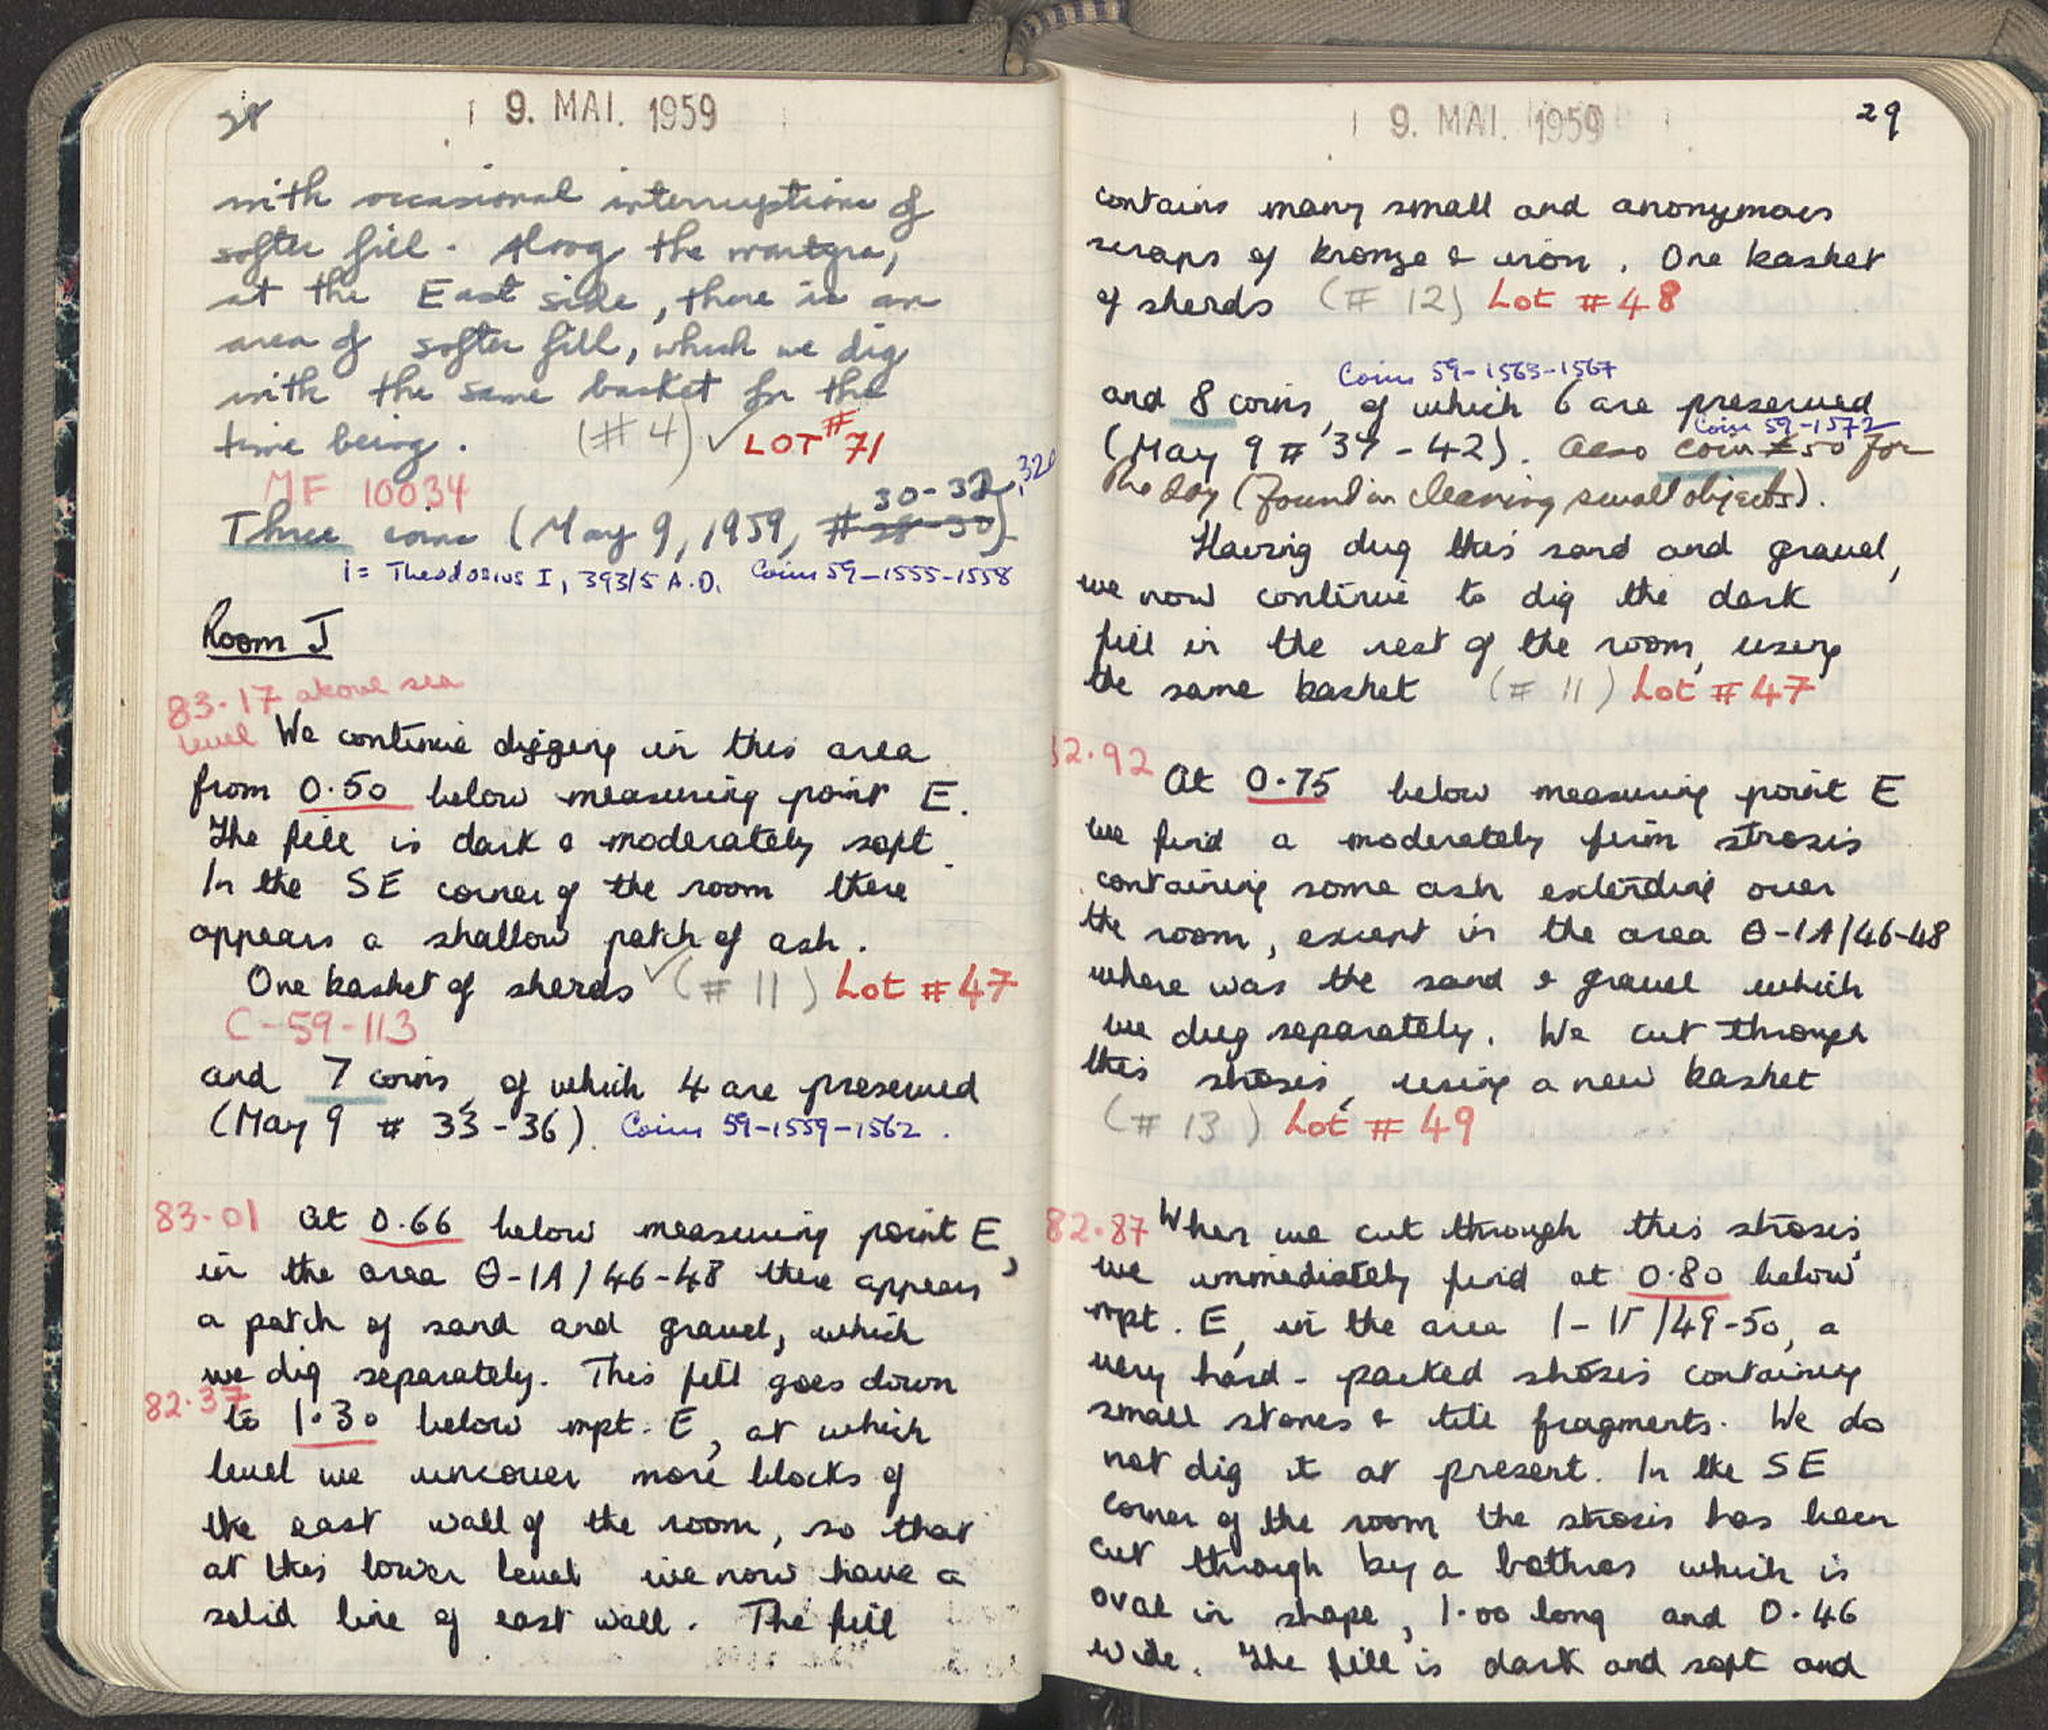 28
9. MAI. 1959
with occasional interruptions of
softer fill. Along the martyra,
at the East side, there is an
area of softer fill, which we dig
with the same basket for the
time being. (#4) ✓ LOT # 71
MF 10034
30-32, 32a
Three coins (May 9, 1959, #28-30)
i = Theodosius I, 393/5 A.D. Coins 59-1555-1558
Room J
83.17 above sea
level We continue digging in this area
from 0.50 below measuring point E.
The fill is dark & moderately soft.
In the SE corner of the room there
appears a shallow patch of ash.
One basket of sherds ✓ (# 11) Lot #47
C-59-113
and 7 coins, of which 4 are preserved
(May 9 # 33-36). Coins 59-1559-1562.
83.01 At 0.66 below measuring point E,
in the area Θ-IA/46-48 there appears
a patch of sand and gravel, which
we dig separately. This fill goes down
82.37 to 1.30 below mpt. E, at which
level we uncover more blocks of
the east wall of the room, so that
at this lower level we now have a
solid line of east wall. The fill
9. MAI. 1959
29
contains many small and anonymous
scraps of bronze & iron. One basket
of sherds (# 12) Lot #48
Coins 59-1563-1567
and 8 coins, of which 6 are preserved
Coin 59-1572
(May 9 # 37-42). Also coin #50 for
the day (found in cleaning small objects).
Having dug this sand and gravel,
we now continue to dig the dark
fill in the rest of the room, using
the same basket (# 11) Lot #47
82.92 At 0.75 below measuring point E
we find a moderately firm strosis
containing some ash extending over
the room, except in the area Θ-IA/46-48
where was the sand & gravel which
we dug separately. We cut through
this strosis, using a new basket
(# 13) Lot # 49
82.87 When we cut through this strosis,
we immediately find at 0.80 below
mpt. E, in the area I-IΓ/49-50, a
very hard-packed strosis containing
small stones & tile fragments. We do
not dig it at present. In the SE
corner of the room the strosis has been
cut through by a bothros which is
oval in shape, 1.00 long and 0.46
wide. The fill is dark and soft and